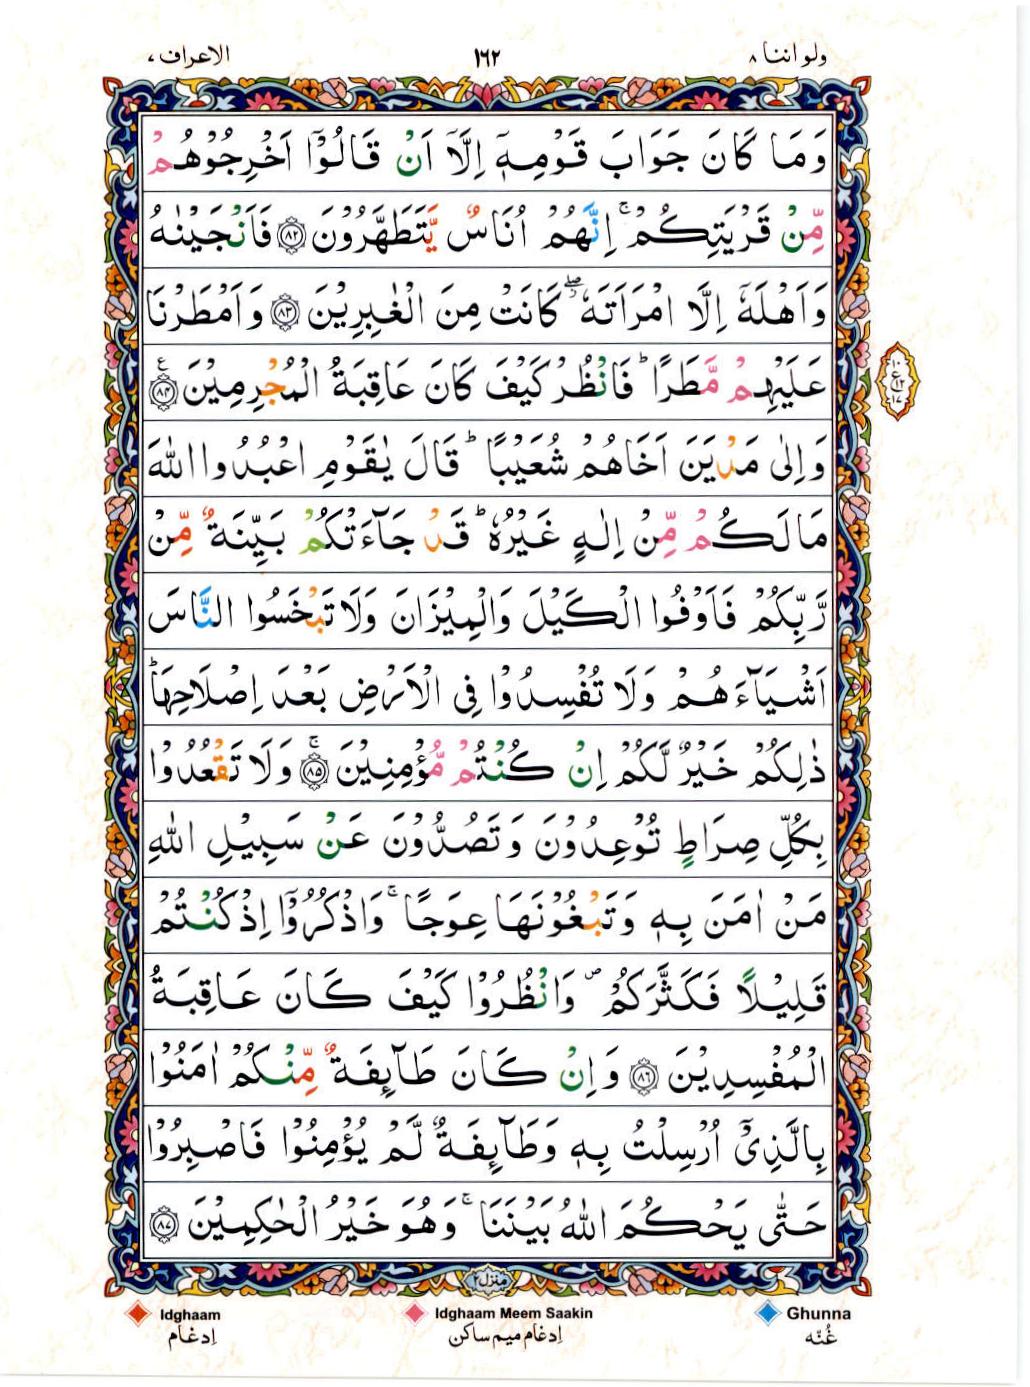 ولو اننا ۸
۱۶۲
الاعراف ۷
وَمَا كَانَ جَوَابَ قَوْمِهٖۤ اِلَّاۤ اَنْ قَالُوْۤا اَخْرِجُوْهُمْ
مِّنْ قَرْيَتِكُمْ ۚ اِنَّهُمْ اُنَاسٌ يَّتَطَهَّرُوْنَ ﴿۸۲﴾ فَاَنْجَيْنٰهُ
وَاَهْلَهٗۤ اِلَّا امْرَاَتَهٗ ۖ كَانَتْ مِنَ الْغٰبِرِيْنَ ﴿۸۳﴾ وَاَمْطَرْنَا
عَلَيْهِمْ مَّطَرًا ؕ فَانْظُرْ كَيْفَ كَانَ عَاقِبَةُ الْمُجْرِمِيْنَ ﴿۸۴﴾ ع
۱۰
ع
۱۲
۱۷
وَاِلٰى مَدْيَنَ اَخَاهُمْ شُعَيْبًا ؕ قَالَ يٰقَوْمِ اعْبُدُوا اللّٰهَ
مَا لَكُمْ مِّنْ اِلٰهٍ غَيْرُهٗ ؕ قَدْ جَآءَتْكُمْ بَيِّنَةٌ مِّنْ
رَّبِّكُمْ فَاَوْفُوا الْكَيْلَ وَالْمِيْزَانَ وَلَا تَبْخَسُوا النَّاسَ
اَشْيَآءَهُمْ وَلَا تُفْسِدُوْا فِى الْاَرْضِ بَعْدَ اِصْلَاحِهَا ؕ
ذٰلِكُمْ خَيْرٌ لَّكُمْ اِنْ كُنْتُمْ مُّؤْمِنِيْنَ ۚ ﴿۸۵﴾ وَلَا تَقْعُدُوْا
بِكُلِّ صِرَاطٍ تُوْعِدُوْنَ وَتَصُدُّوْنَ عَنْ سَبِيْلِ اللّٰهِ
مَنْ اٰمَنَ بِهٖ وَتَبْغُوْنَهَا عِوَجًا ۚ وَاذْكُرُوْۤا اِذْ كُنْتُمْ
قَلِيْلًا فَكَثَّرَكُمْ ۪ وَانْظُرُوْا كَيْفَ كَانَ عَاقِبَةُ
الْمُفْسِدِيْنَ ﴿۸۶﴾ وَاِنْ كَانَ طَآئِفَةٌ مِّنْكُمْ اٰمَنُوْا
بِالَّذِىْۤ اُرْسِلْتُ بِهٖ وَطَآئِفَةٌ لَّمْ يُؤْمِنُوْا فَاصْبِرُوْا
حَتّٰى يَحْكُمَ اللّٰهُ بَيْنَنَا ۚ وَهُوَ خَيْرُ الْحٰكِمِيْنَ ﴿۸۷﴾
منزل ۲
Idghaam
Idghaam Meem Saakin
Ghunna
اِدغام
اِدغام میم ساکن
غُنّه